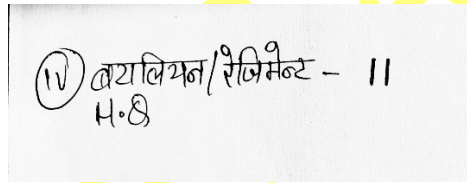 (iv) बटालियन/रेजिमेन्ट - 11
H.Q